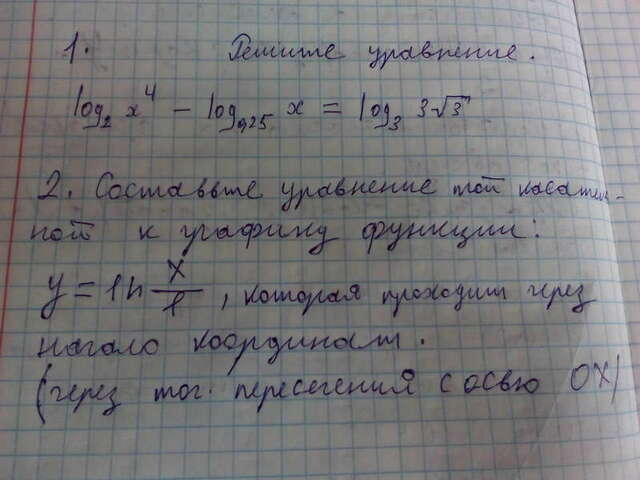 1. Решите уравнение.
log₂ x⁴ - log₀,₂₅ x = log₃ 3√3
2. Составьте уравнение той касатель-
ной к графику функции:
y = ln x/l, которая проходит через
начало координат.
(через точ. пересечения с осью OX)